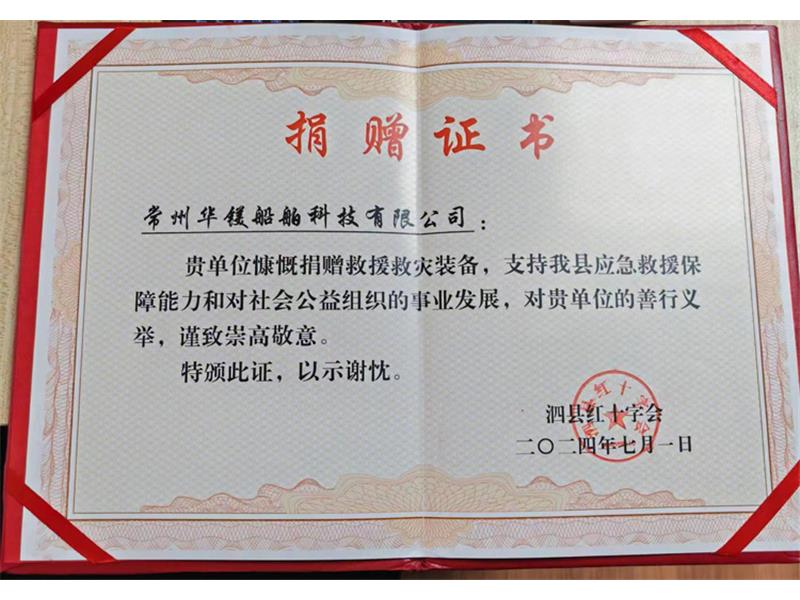 捐赠证书
常州华镁船舶科技有限公司：
贵单位慷慨捐赠救援救灾装备，支持我县应急救援保
障能力和对社会公益组织的事业发展，对贵单位的善行义
举，谨致崇高敬意。
特颁此证，以示谢忱。
泗县红十字会
二〇二四年七月一日
泗县红十字会